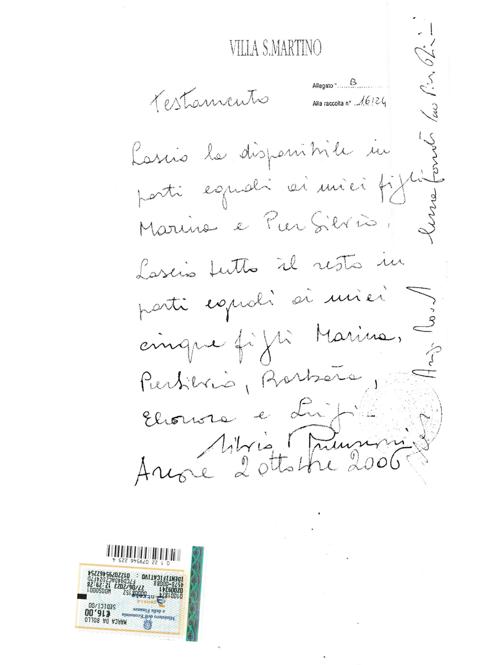 VILLA S.MARTINO
Allegato " B
Alla raccolta n° 16124
Testamento
Lascio la disponibile in
parti eguali ai miei figli
Marina e Pier Silvio.
Lascio tutto il resto in
parti eguali ai miei
cinque figli Marina,
PierSilvio, Barbara,
Eleonora e Luigi
Silvio Berlusconi
Arcore 2 ottobre 2006
0 1 22 079546 225 4
MARCA DA BOLLO
€16,00
SEDICI/00
Ministero dell'Economia
e delle Finanze
27/06/2023 12:29:28
IDENTIFICATIVO : 01220795462254